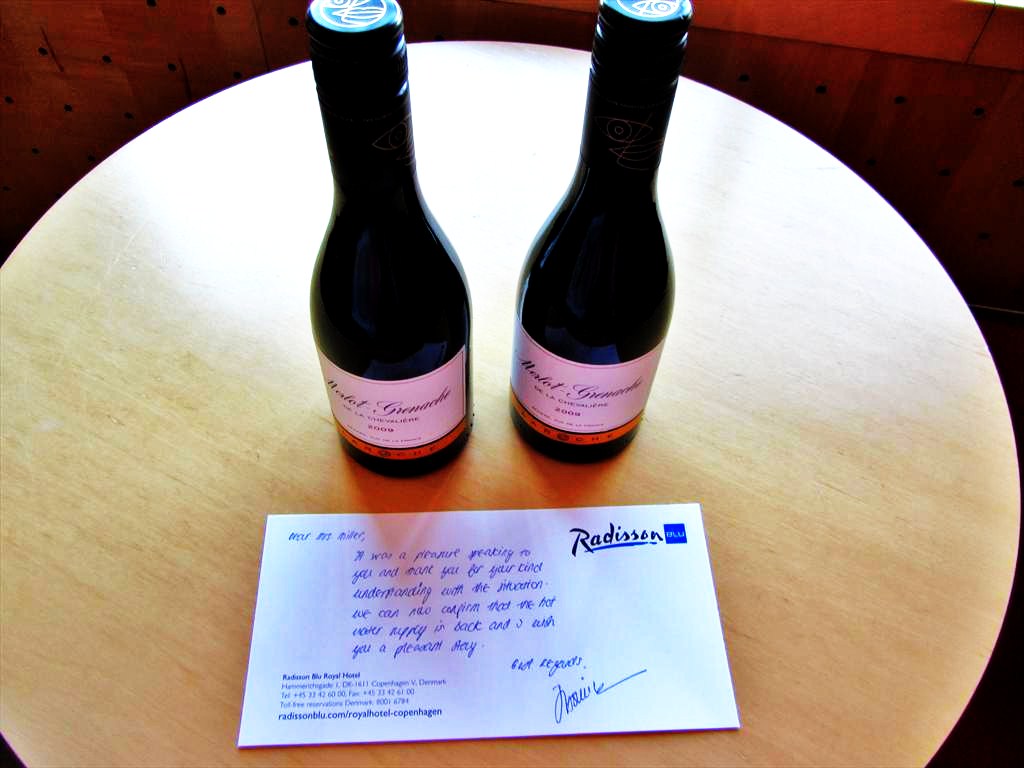 Merlot-Grenache
DE LA CHEVALIÈRE
2009
LAROCHE
Merlot-Grenache
DE LA CHEVALIÈRE
2009
LAROCHE
Radisson BLU
Dear Mrs Miller,
It was a pleasure speaking to
you and thank you for your kind
understanding with the situation.
we can now confirm that the hot
water supply is back and I wish
you a pleasant stay.
Best regards,
Radisson Blu Royal Hotel
Hammerichsgade 1, DK-1611 Copenhagen V, Denmark
Tel: +45 33 42 60 00, Fax: +45 33 42 61 00
Toll-free reservations Denmark: 8001 6784
radissonblu.com/royalhotel-copenhagen